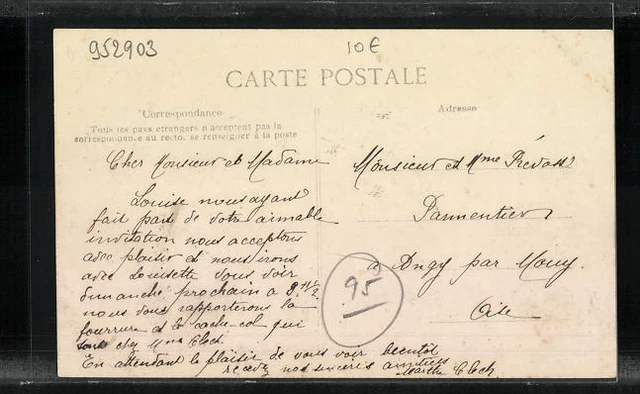 952903
10€
CARTE POSTALE
Correspondance
Tous les pays etrangers n'acceptent pas la
correspondance au recto, se renseigner à la poste
Adresse
Cher Monsieur et Madame
Louise nous ayant
fait part de votre aimable
invitation nous acceptons
avec plaisir et nous irons
avec Louisette vous voir
dimanche prochain à 9 h 1/2
nous vous rapporterons la
fourrure et le cache-col qui
sont chez Mme Cloch
En attendant le plaisir de vous voir bientôt
recevez nos sincères amitiés
Cloch
Monsieur et Mme Prévost
Parmentier
à Angy par Mouy
Oise
95